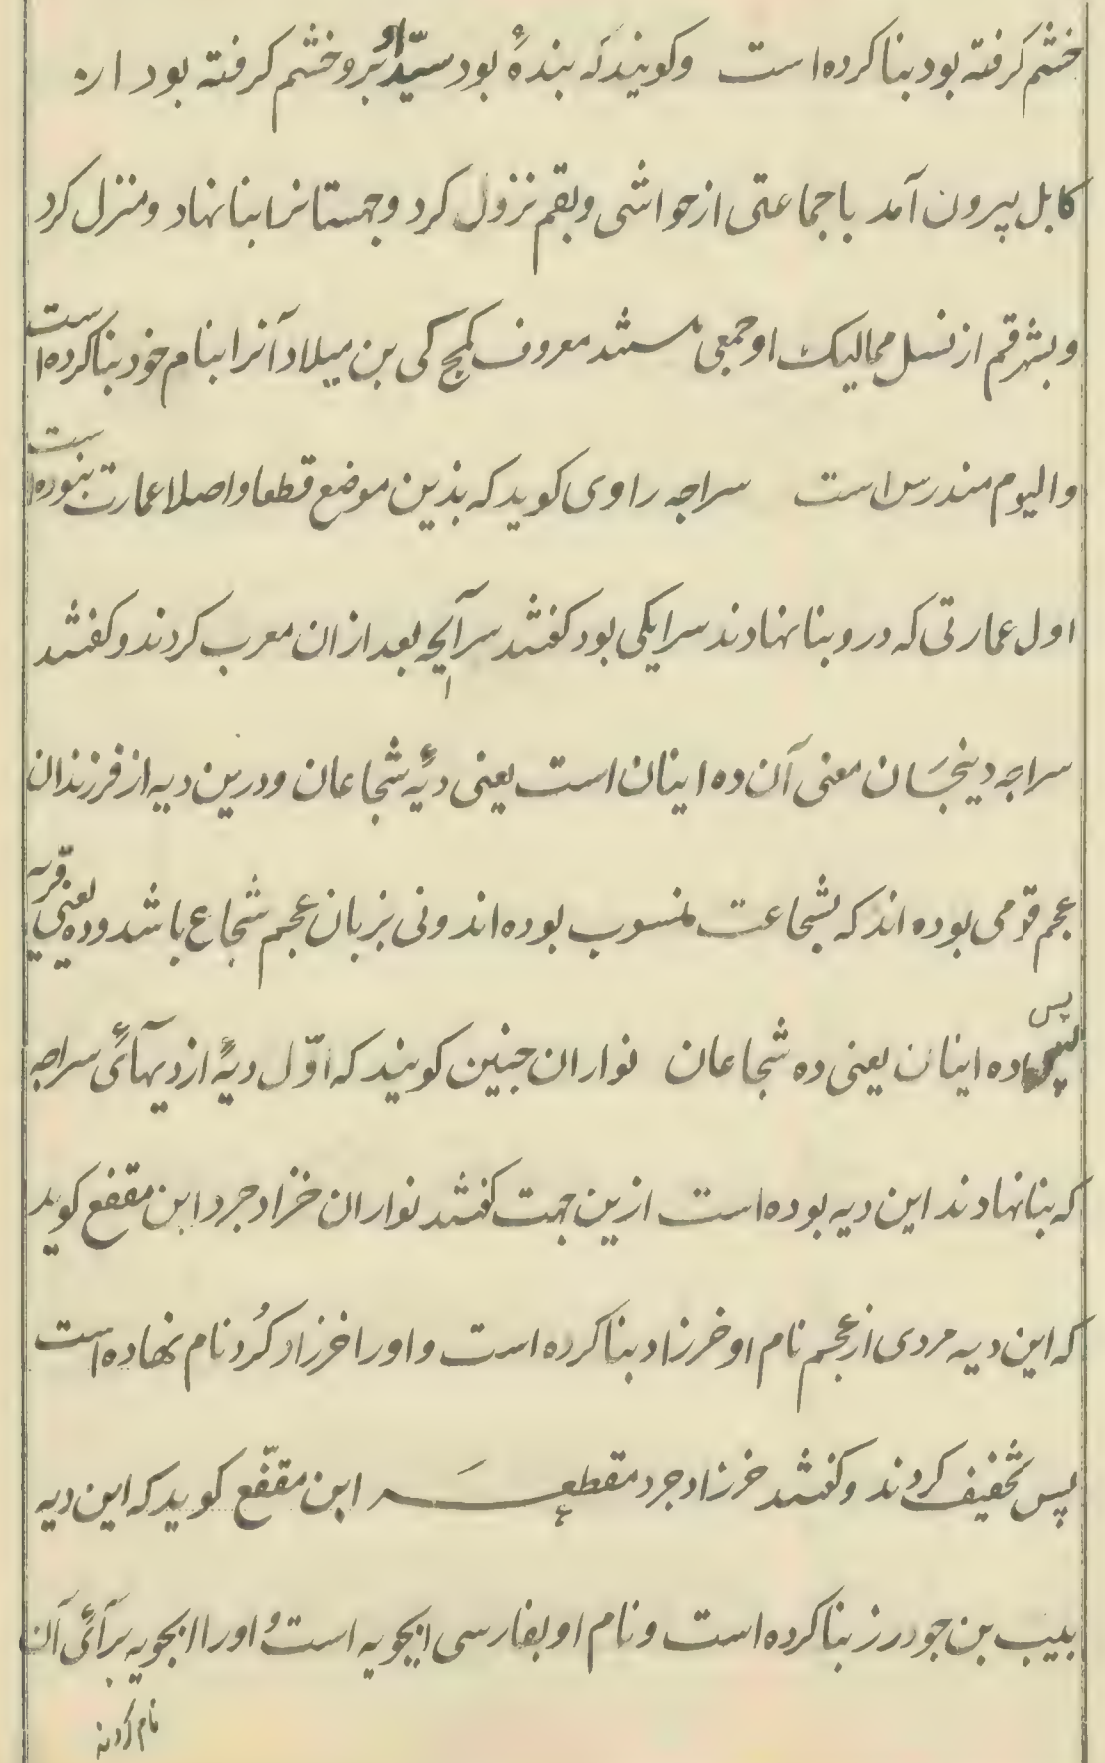 خشم کرفته بود بنا کرده است وکویند که بندهٔ بود سیّد او برو خشم کرفته بود از
کابل بیرون آمد با جماعتی از حواشی وبقم نزول کرد وجهستانرا بنا نهاد ومنزل کرد
وبشهر قم از نسل ممالیک او جمعی هستند معروف کمج کی بن میلاد آنرا بنام خود بنا کرده است
والیوم مندرس است سراجه راوی کوید که بذین موضع قطعا واصلا عمارت نبوده است
اول عمارتی که درو بنا نهادند سرایکی بود کفتند سرایچه بعد از ان معرب کردند وکفتند
سراجه دینجَسان معنی آن ده اینان است یعنی دیهٔ شجاعان ودرین دیه از فرزندان
عجم قومی بوده اند که بشجاعت منسوب بوده اند ونی بزبان عجم شجاع باشد وده یعنی قریه
پس ده اینان یعنی ده شجاعان نواران جنین کویند که اوّل دیهٔ از دیهآئی سراجه
که بنا نهادند این دیه بوده است ازین جهت کفتند نواران خرزادجرد ابن مقفع کوید
که این دیه مردی از عجم نام او خرزاد بنا کرده است واورا خرزاد کُرد نام نهاده است
پس تخفیف کردند وکفتند خرزادجرد مقطعه ابن مقفّع کوید که این دیه
بیب بن جودرز بنا کرده است ونام او بفارسی ایجویه است واورا ایجویه برآئی آن
نام کردند